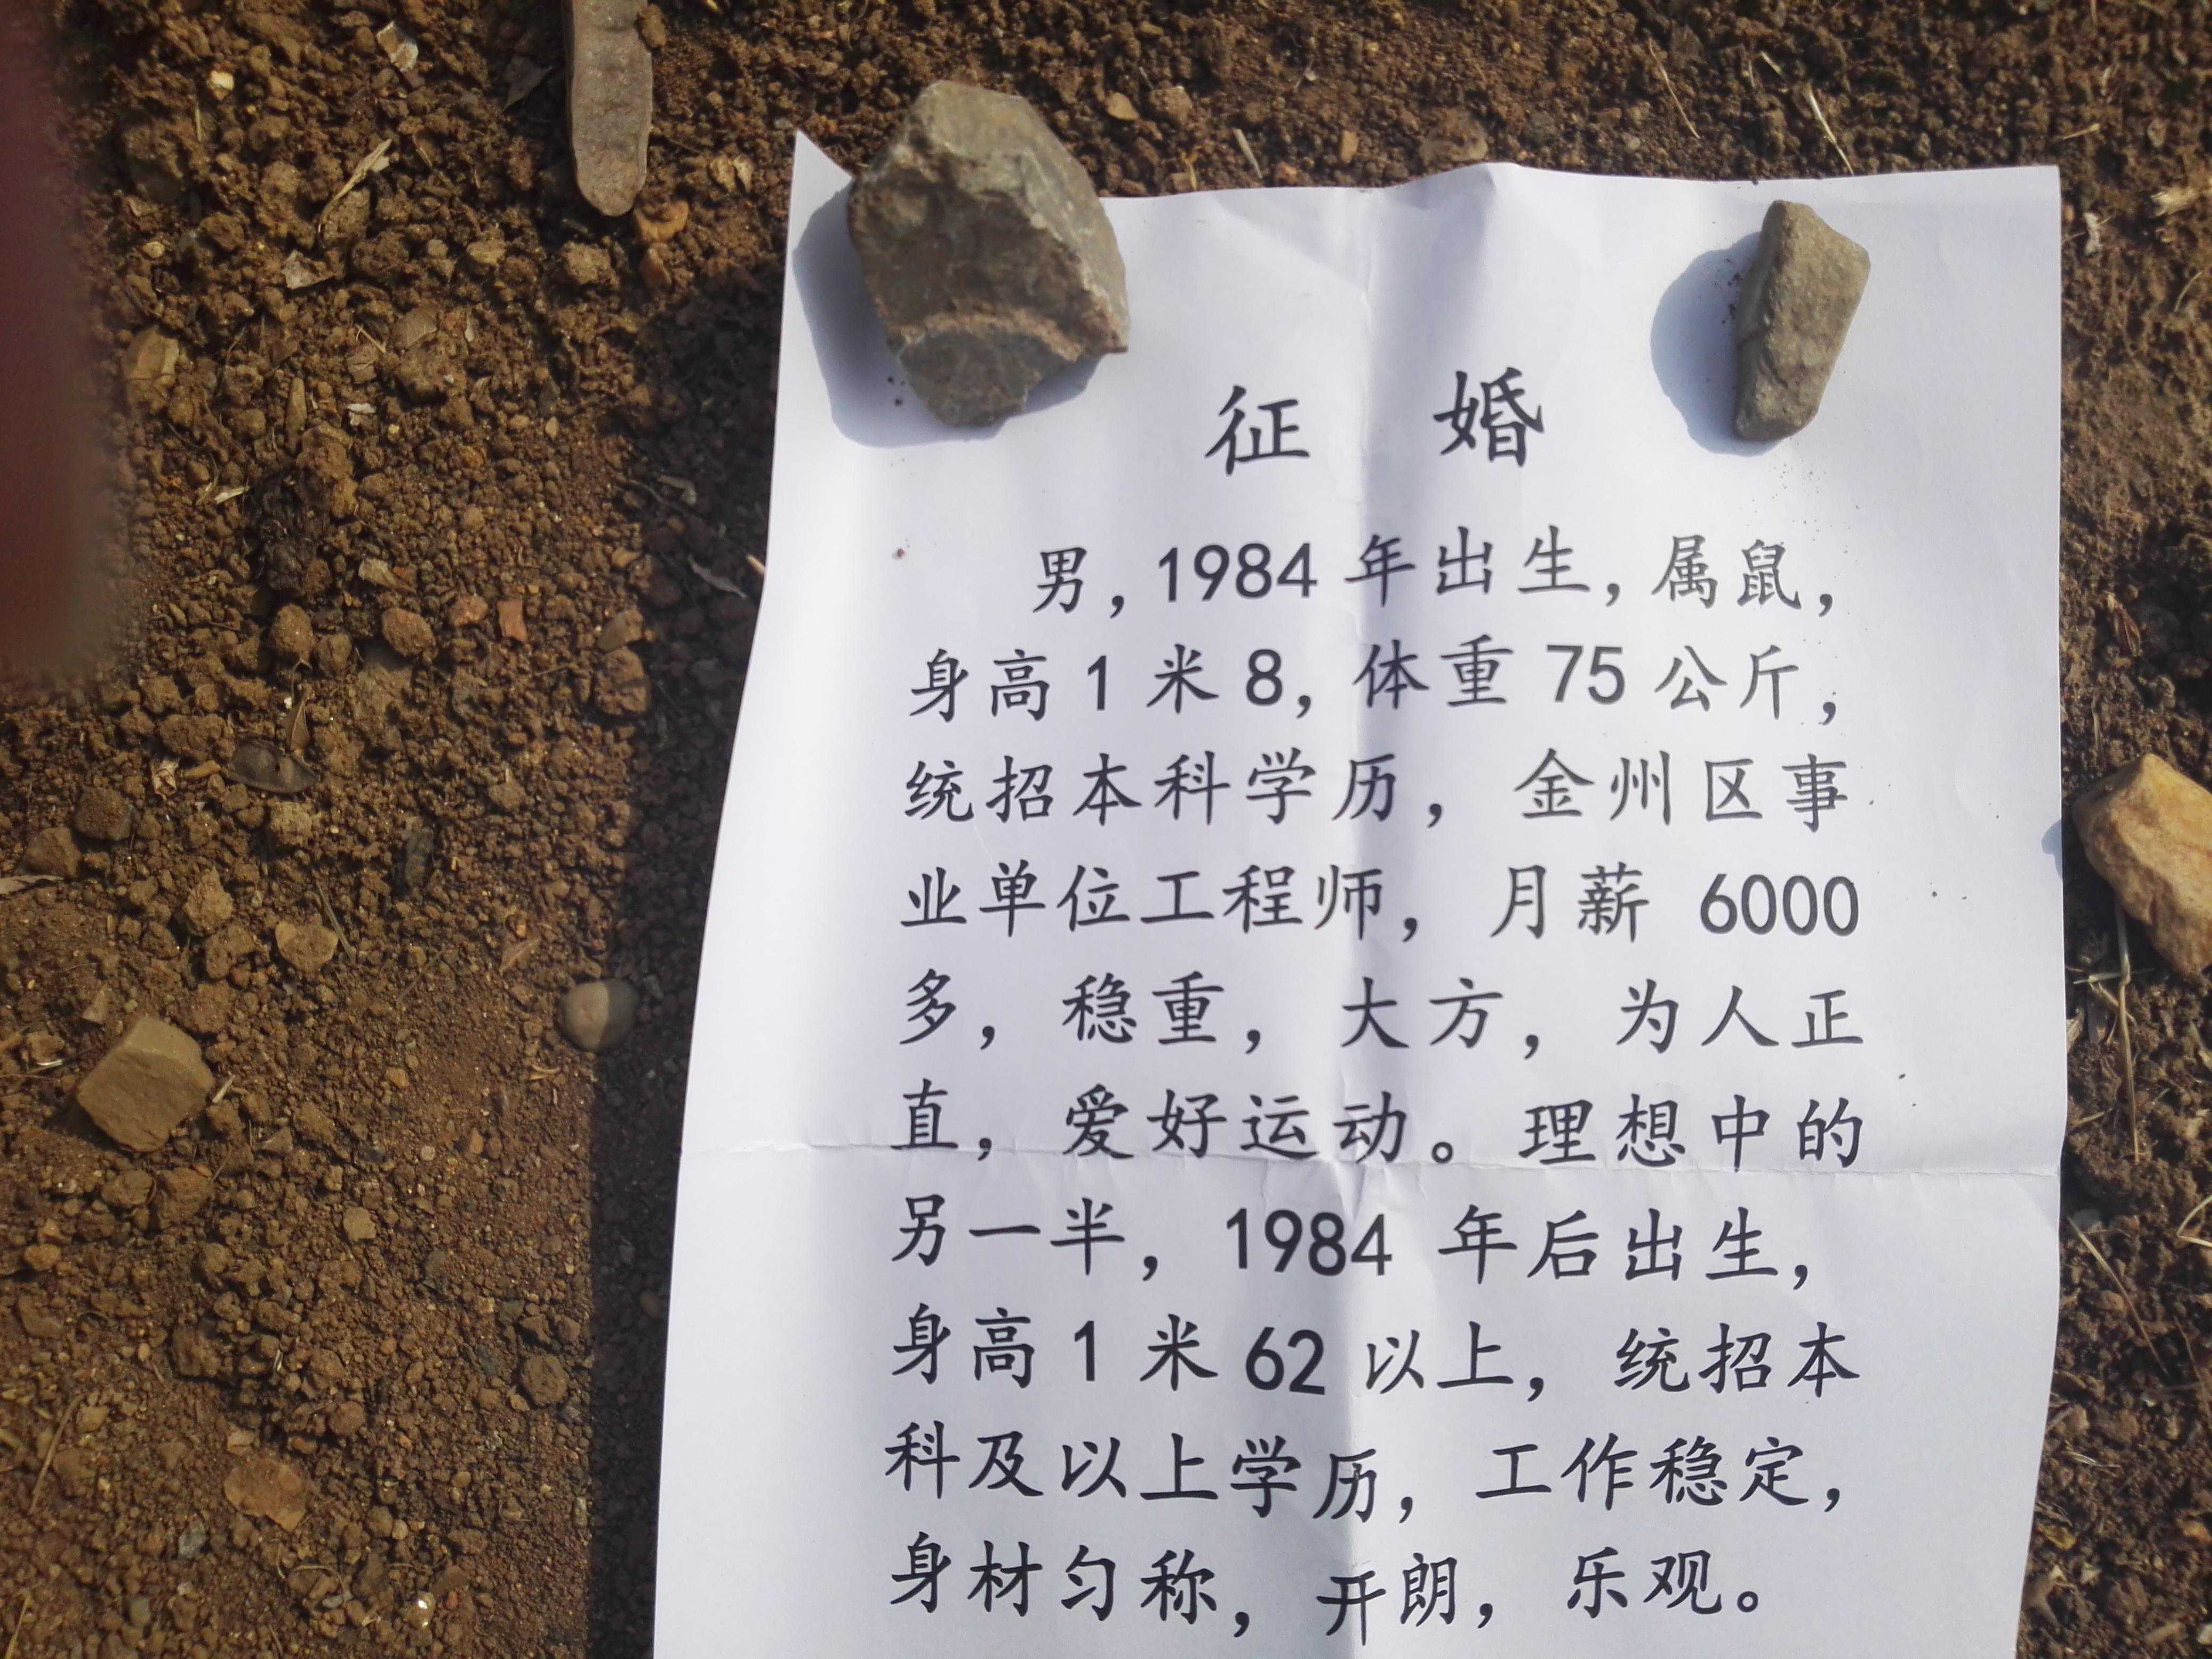 征 婚
男,1984年出生,属鼠,
身高1米8,体重75公斤,
统招本科学历，金州区事
业单位工程师，月薪 6000
多，稳重，大方，为人正
直，爱好运动。理想中的
另一半，1984 年后出生，
身高1米62以上，统招本
科及以上学历，工作稳定，
身材匀称，开朗，乐观。